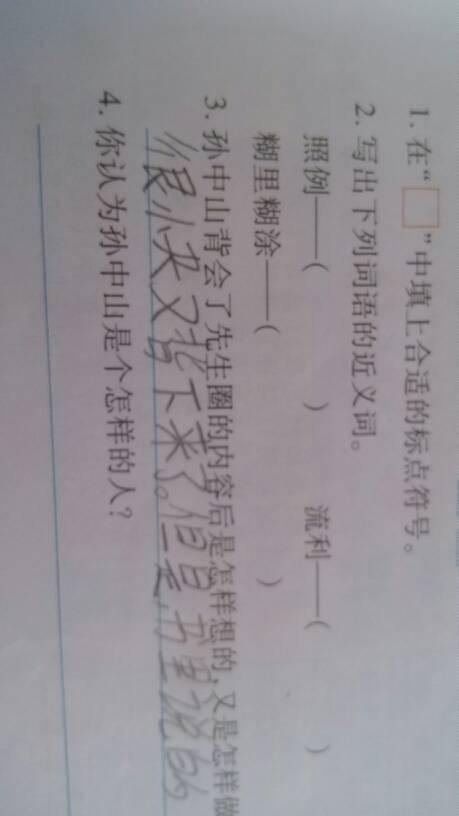 1. 在“□”中填上合适的标点符号。
2. 写出下列词语的近义词。
照例——( ) 流利——( )
糊里糊涂——( )
3. 孙中山背会了先生圈的内容后是怎样想的,又是怎样做
很小夹又背下来了。但是,书里说的
4. 你认为孙中山是个怎样的人?